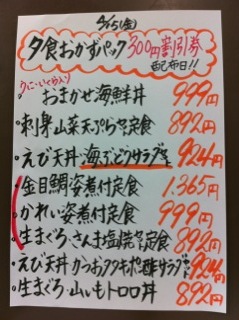 5(金)
夕食おかずパック300円割引券
配布日!!
うに・いくら入り
おまかせ海鮮丼 999円
・刺身山菜天ぷら定食 892円
・えび天丼・海ぶどうサラダ 924円
・金目鯛姿煮付定食 1.365円
・かれい姿煮付定食 999円
・生まぐろ・さんま塩焼定食 892円
・えび天丼 かつおタタキポン酢サラダ 924円
・生まぐろ・山いもトロロ丼 892円